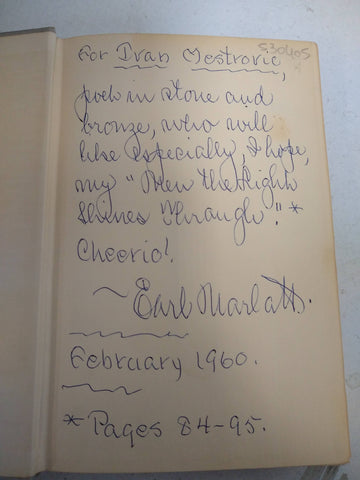 530405
For Ivan Mestrovic,
poet in stone and
bronze, who will
like especially, I hope,
my "Men the Light
Shines Through." *
Cheerio!
~ Earl Marlatt.
February 1960.
* Pages 84-95.